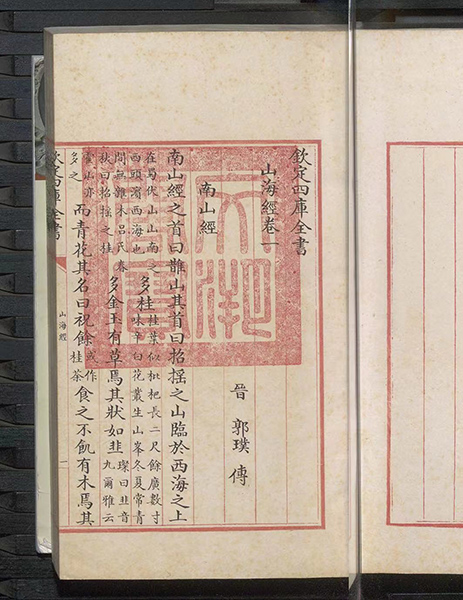 欽定四庫全書
山海經卷一
晉 郭璞 傳
南山經
南山經之首曰䧿山其首曰招搖之山臨於西海之上
在蜀伏山山南之
西頭濵西海也
多桂
桂葉似枇杷長二尺餘廣數寸
味辛白花叢生山峯冬夏常青
間無雜木呂氏春
秋曰招搖之桂
多金玉有草焉其狀如韭
璨曰韭音
九爾雅云
霍山亦
多之
而青花其名曰祝餘
或作
桂荼
食之不飢有木焉其
欽定四庫全書
山海經
文淵閣寶